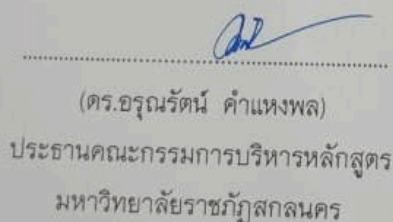 (ดร.อรุณรัตน์ คำแหงพล)
ประธานคณะกรรมการบริหารหลักสูตร
มหาวิทยาลัยราชภัฏสกลนคร